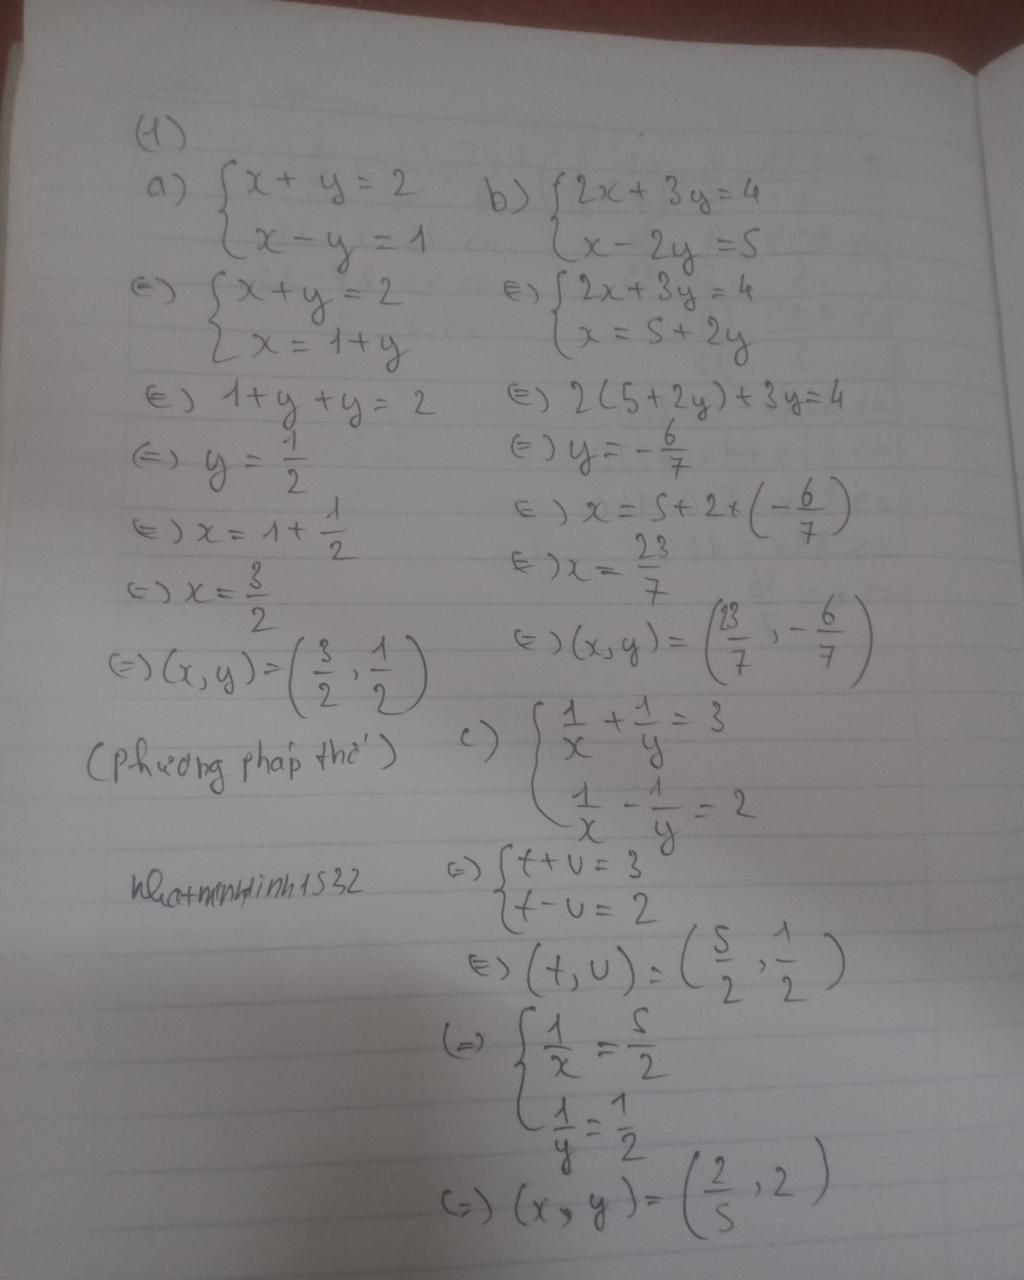 (1)
a) { x + y = 2
x - y = 1
(=) { x + y = 2
x = 1 + y
(=) 1 + y + y = 2
(=) y = 1/2
(=) x = 1 + 1/2
(=) x = 3/2
(=) (x, y) = (3/2, 1/2)
(Phương pháp thế)
b) { 2x + 3y = 4
x - 2y = 5
(=) { 2x + 3y = 4
x = 5 + 2y
(=) 2(5 + 2y) + 3y = 4
(=) y = -6/7
(=) x = 5 + 2 * (-6/7)
(=) x = 23/7
(=) (x, y) = (23/7, -6/7)
c) { 1/x + 1/y = 3
1/x - 1/y = 2
(=) { t + u = 3
t - u = 2
(=) (t, u) = (5/2, 1/2)
(=) { 1/x = 5/2
1/y = 1/2
(=) (x, y) = (2/5, 2)